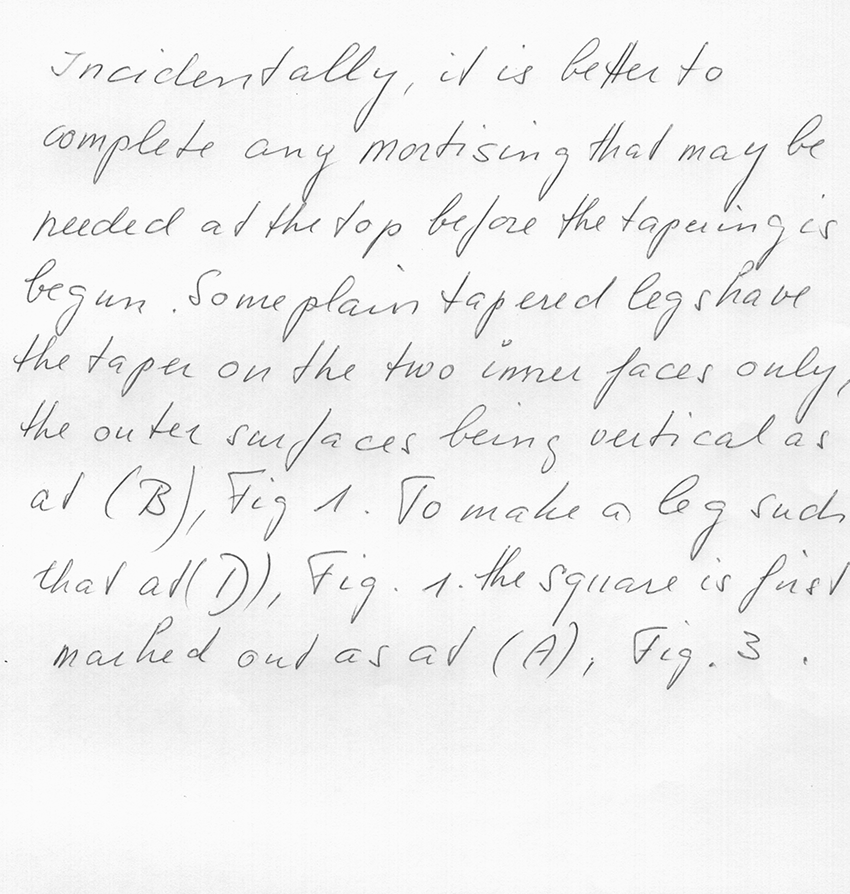 Incidentally, it is better to
complete any mortising that may be
needed at the top before the tapering is
begun. Some plain tapered legs have
the taper on the two inner faces only,
the outer surfaces being vertical as
at (B), Fig 1. To make a leg such
that at (D), Fig. 1. the square is first
marked out as at (A), Fig. 3.